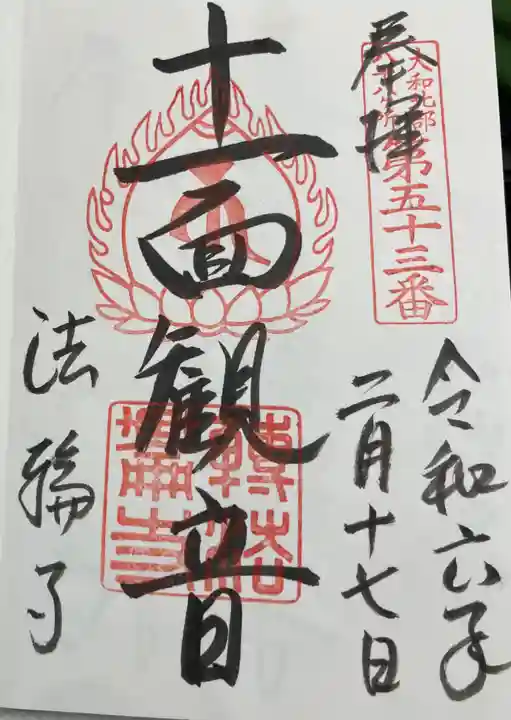 奉拝
大和北部
八十八ヶ所
第五十三番
令和六年
二月十七日
十一面観音
法輪寺